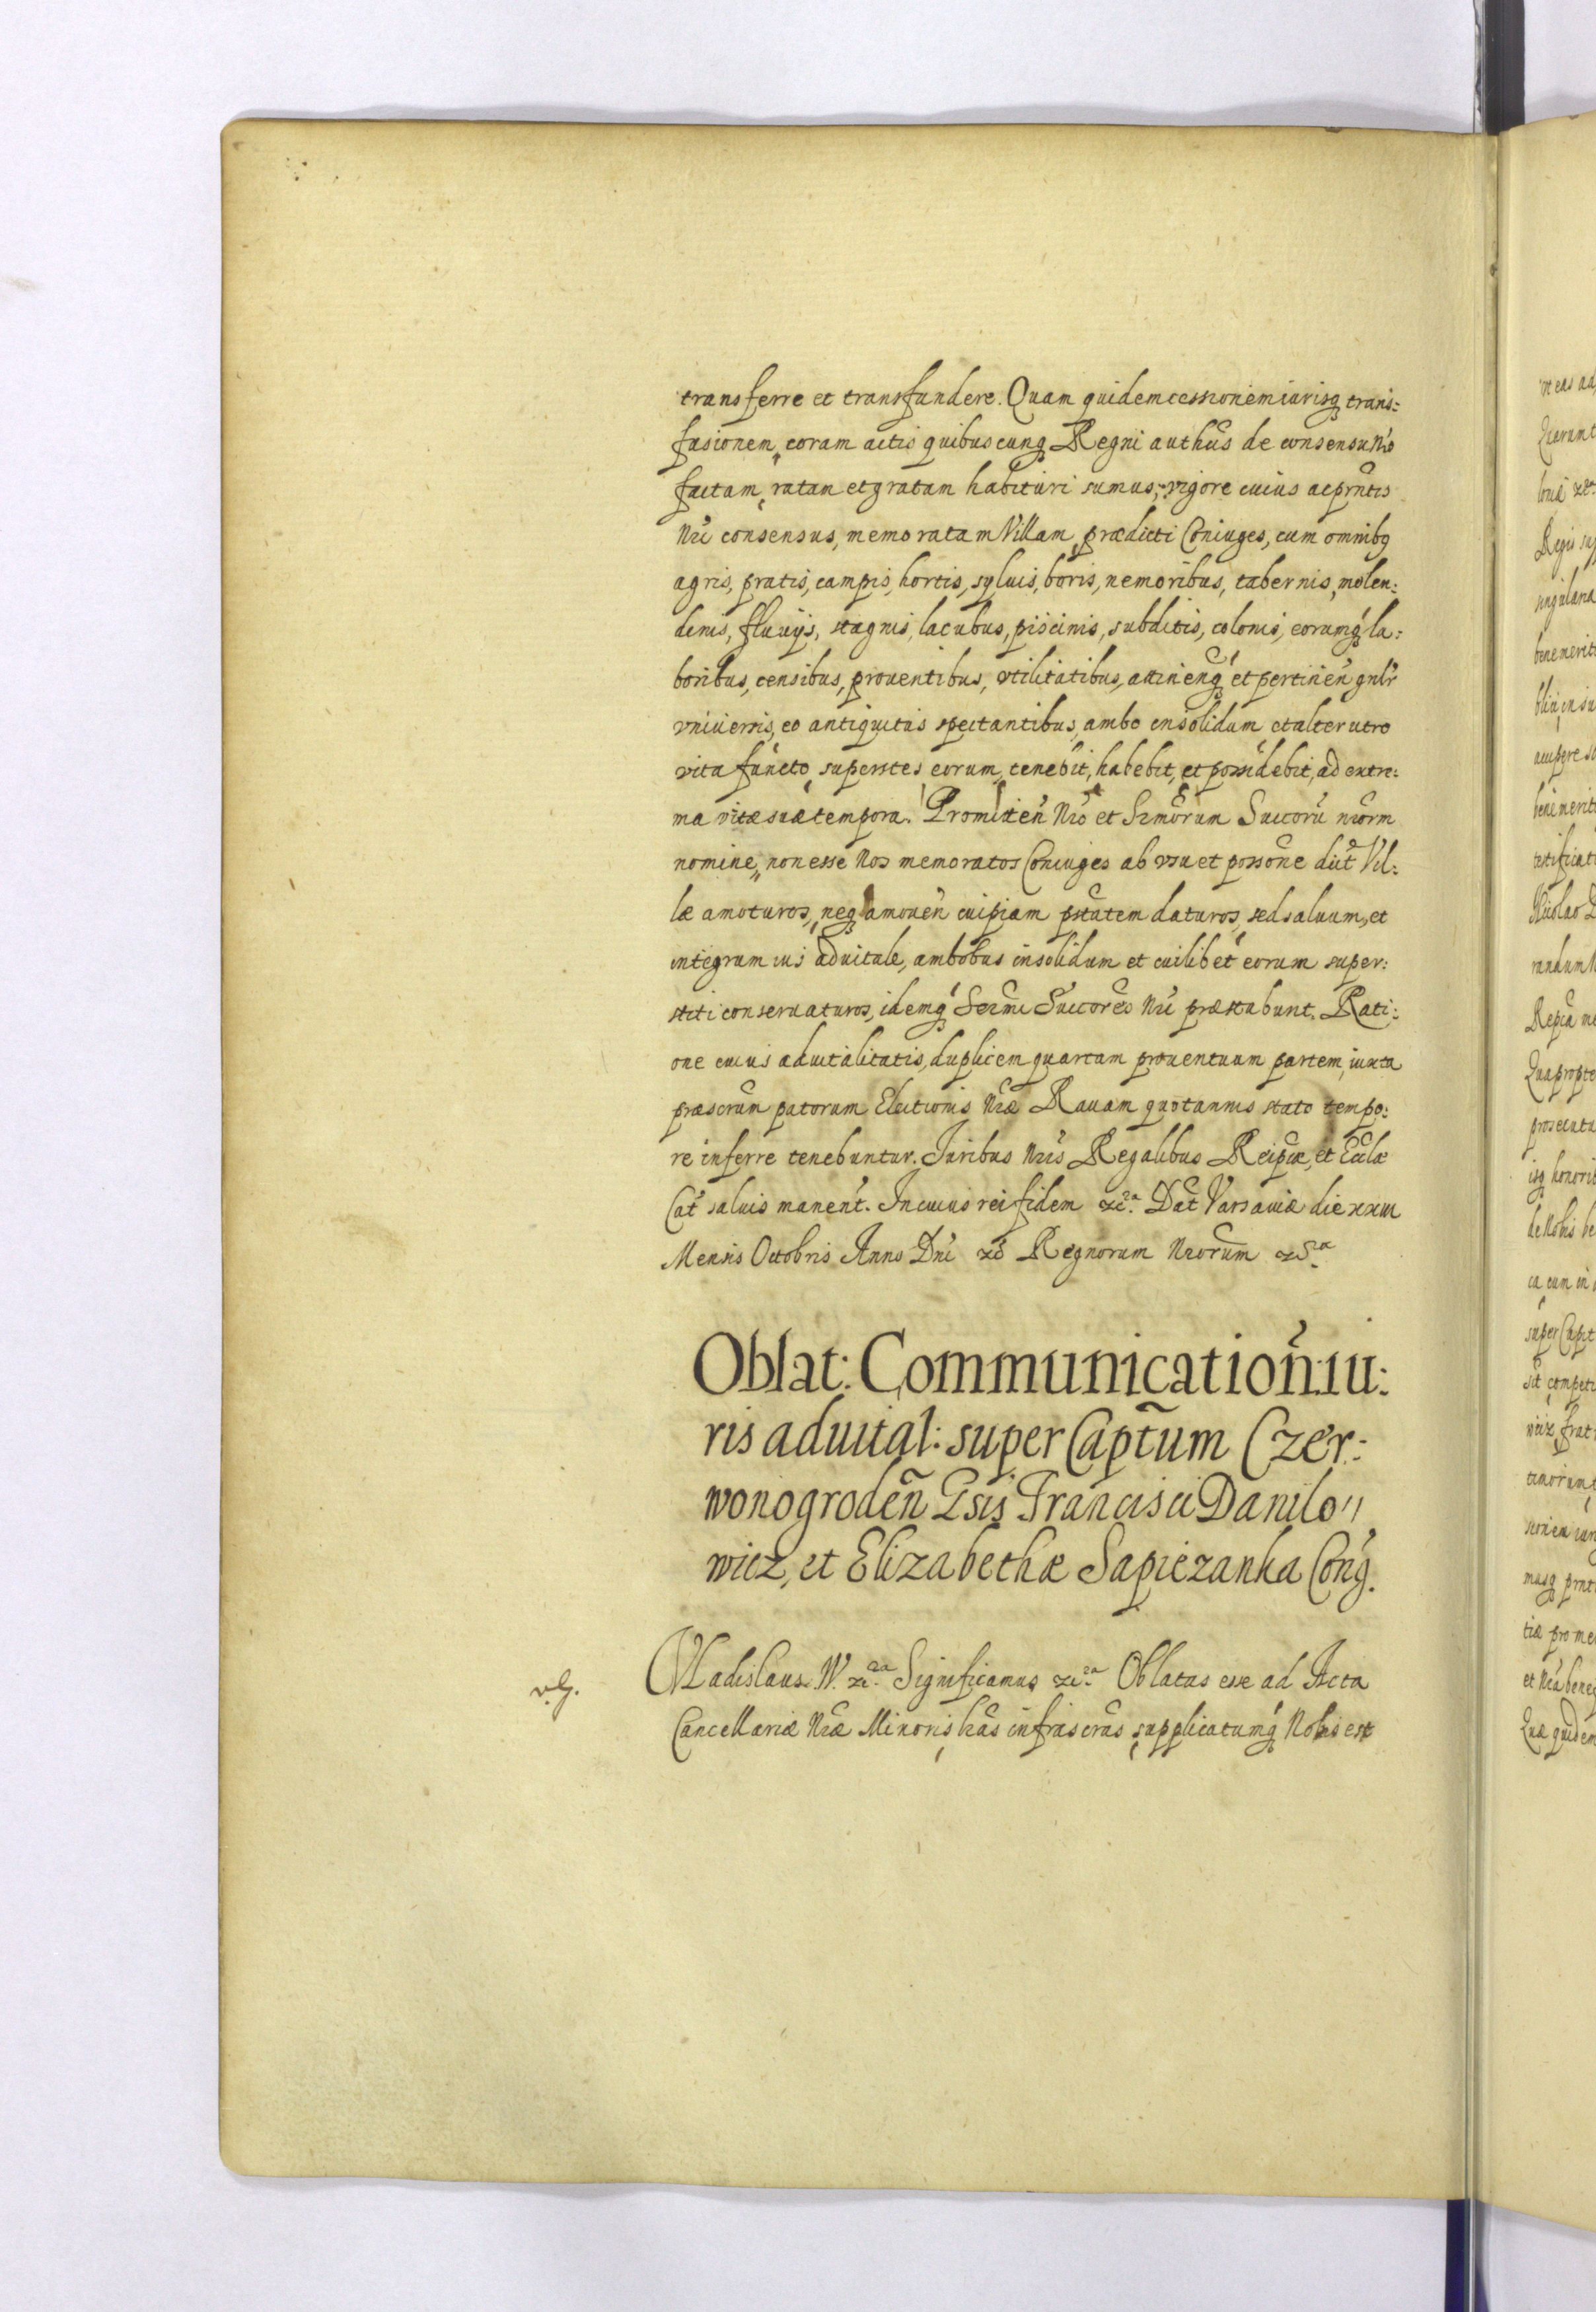 transferre et transfundere. Quam quidem cessionem iurisq trans:
fusionem, coram actis quibuscunq Regni authēs de consensu Nro
factam, ratam et gratam habituri sumus, vigore cuius ac prntis
Nri consensus, memoratam Villam, prædicti Coniuges, cum omnibq
agris, pratis, campis, hortis, syluis, boris, nemoribus, tabernis, molen:
dinis, fluuijs, stagnis, lacubus, piscinis, subditis, colonis, eorumq la:
boribus, censibus, prouentibus, vtilitatibus, attinenq et pertinen gnlr
vniuersis, eo antiquitus spectantibus, ambo insolidum, et alterutro
vita functo, superstes eorum, tenebit, habebit, et possidebit, ad extre:
ma vitæ suæ tempora. Promitten Nro et Srmorum Succoru nrorm
nomine, non esse Nos memoratos Coniuges ab vsu et possone dict Vil:
læ amoturos, neq amouen cuipiam pstatem daturos, sed saluum, et
integrum ius aduitale, ambobus insolidum et cuilibet eorum super:
stiti conseruaturos, idemq Sermi Succores Nri præstabunt. Rati:
one cuius aduitalitatis, duplicem quartam prouentuum partem, iuxta
præscrum patorum Electionis Nræ Rauam quotannis stato tempo:
re inferre tenebuntur. Juribus Nris Regalibus Reipcæ, et Ecclæ
Cat saluis manent. In cuius rei fidem &c. Dat Varsauiæ die xxiii
Mensis Octobris Anno Dni &c Regnorum Nrorum &c.
Oblat: Communication iu:
ris aduital: super Captum Czer:
wonogroden Gsis Francisci Danilo"
wicz, et Elizabethæ Sapiezanka Conj.
Vladislaus. IV. &c. Significamus &c. Oblatas esse ad Acta
Cancellariæ Nræ Minoris lras infrascras supplicatumq Nobis est